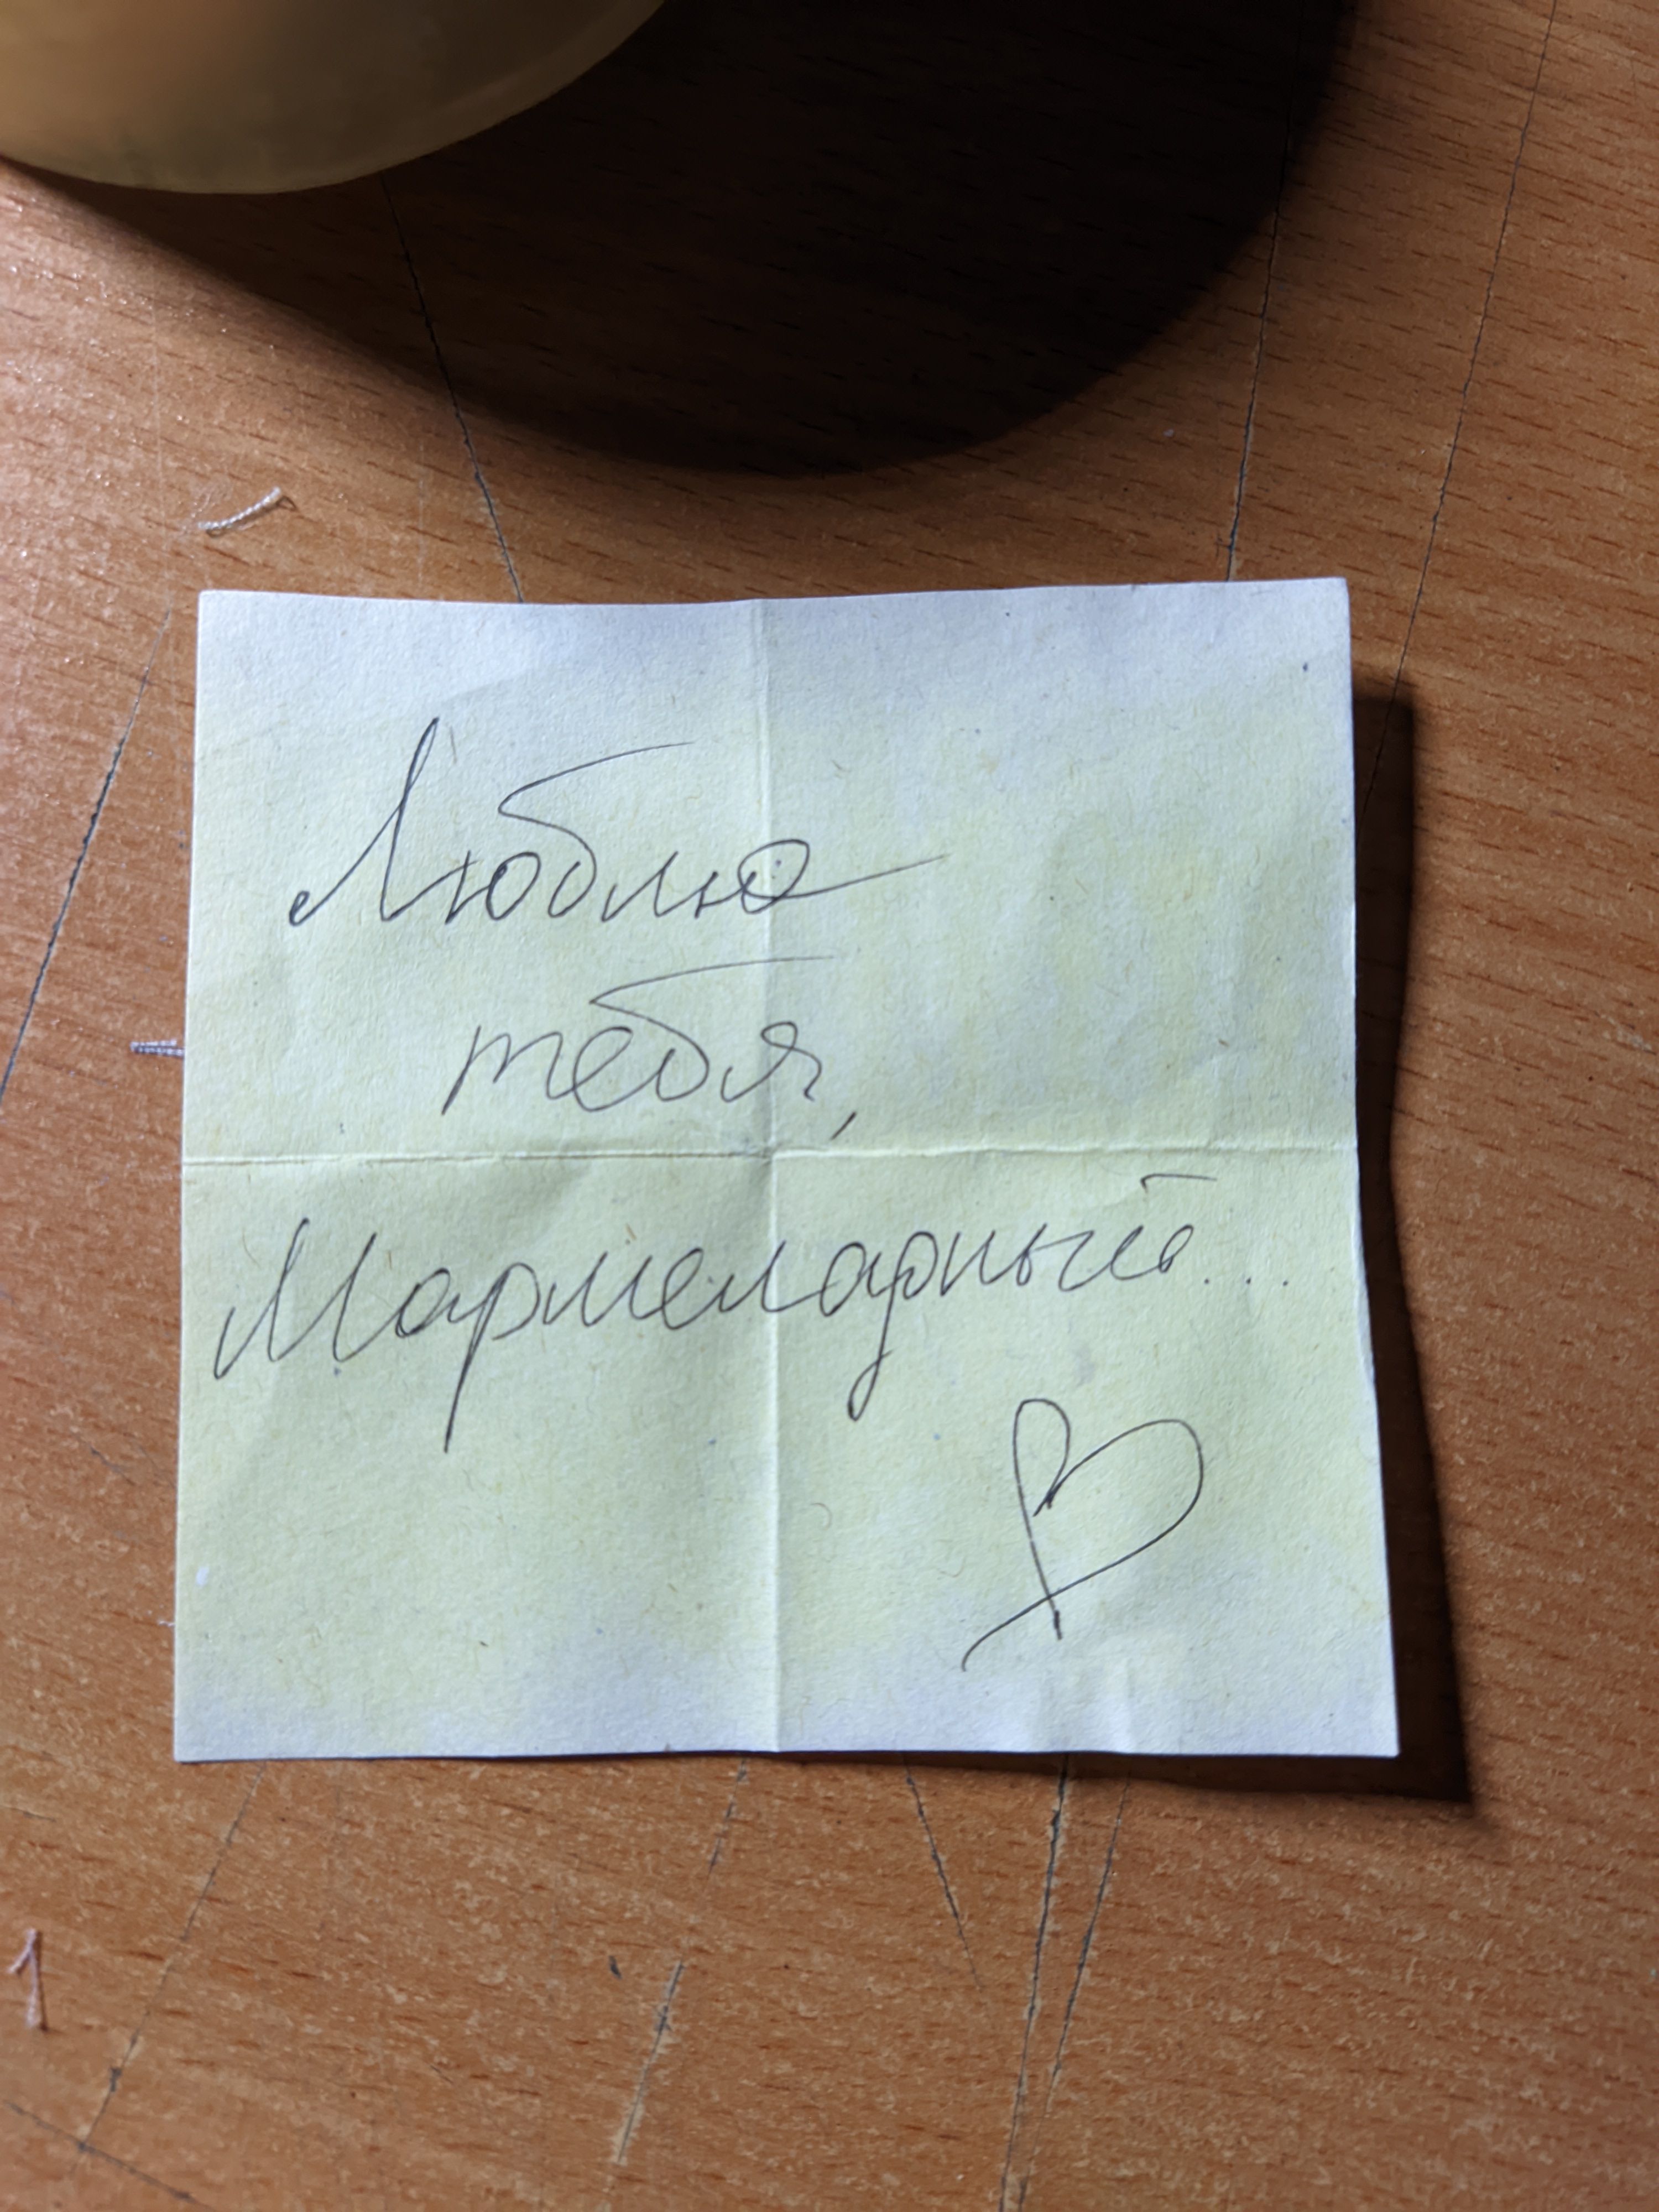 Люблю
тебя,
Мармеладный...